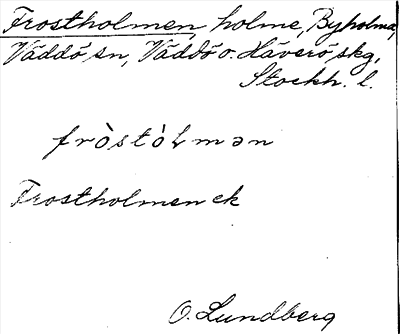 Frostholmen, holme, Byholma,
Väddö sn, Väddö o. Häverö skg,
Stockh. l.
fròstòƚmən
Frostholmen ek
O. Lundberg